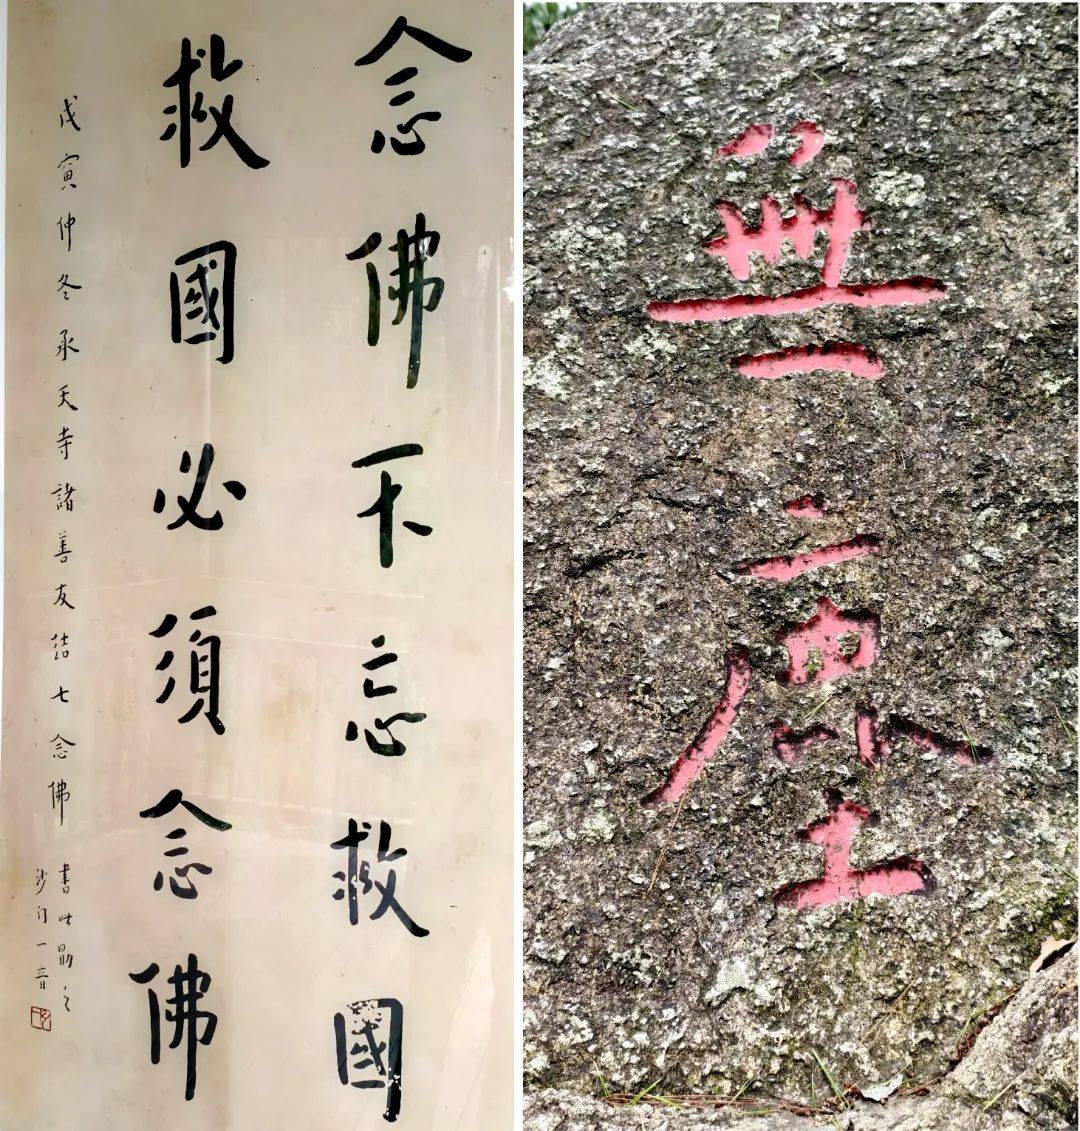 念佛不忘救國
救國必須念佛
戊寅仲冬承天寺諸善友結七念佛 書此勗之
沙門一音
塵